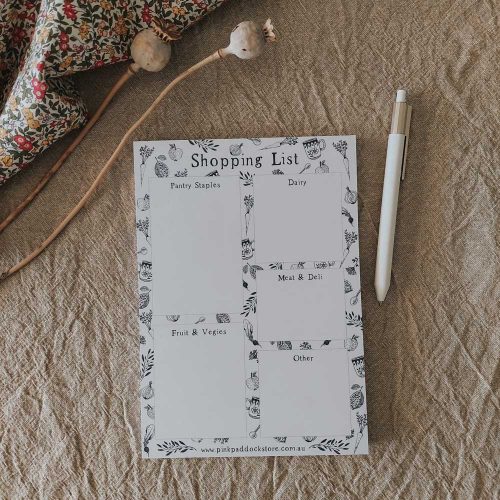 Shopping List
Pantry Staples
Dairy
Meat & Deli
Fruit & Vegies
Other
www.pinkpaddockstore.com.au